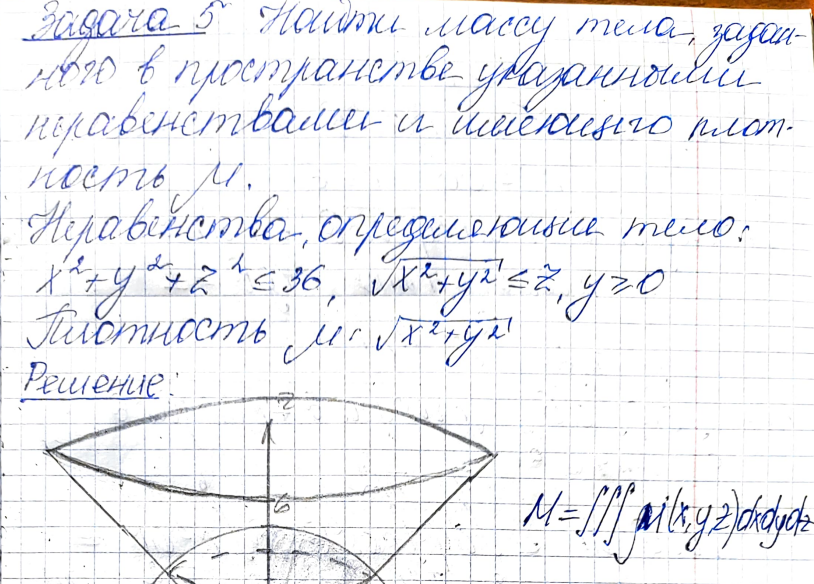 Задача 5 Найти массу тела, задан-
ного в пространстве указанными
неравенствами и имеющего плот-
ность μ.
Неравенства, определяющие тело:
x²+y²+z² ≤ 36, √x²+y² ≤ z, y ≥ 0
Плотность μ: √x²+y²
Решение:
z
6
M = ∭ μ(x,yz)dxdydz